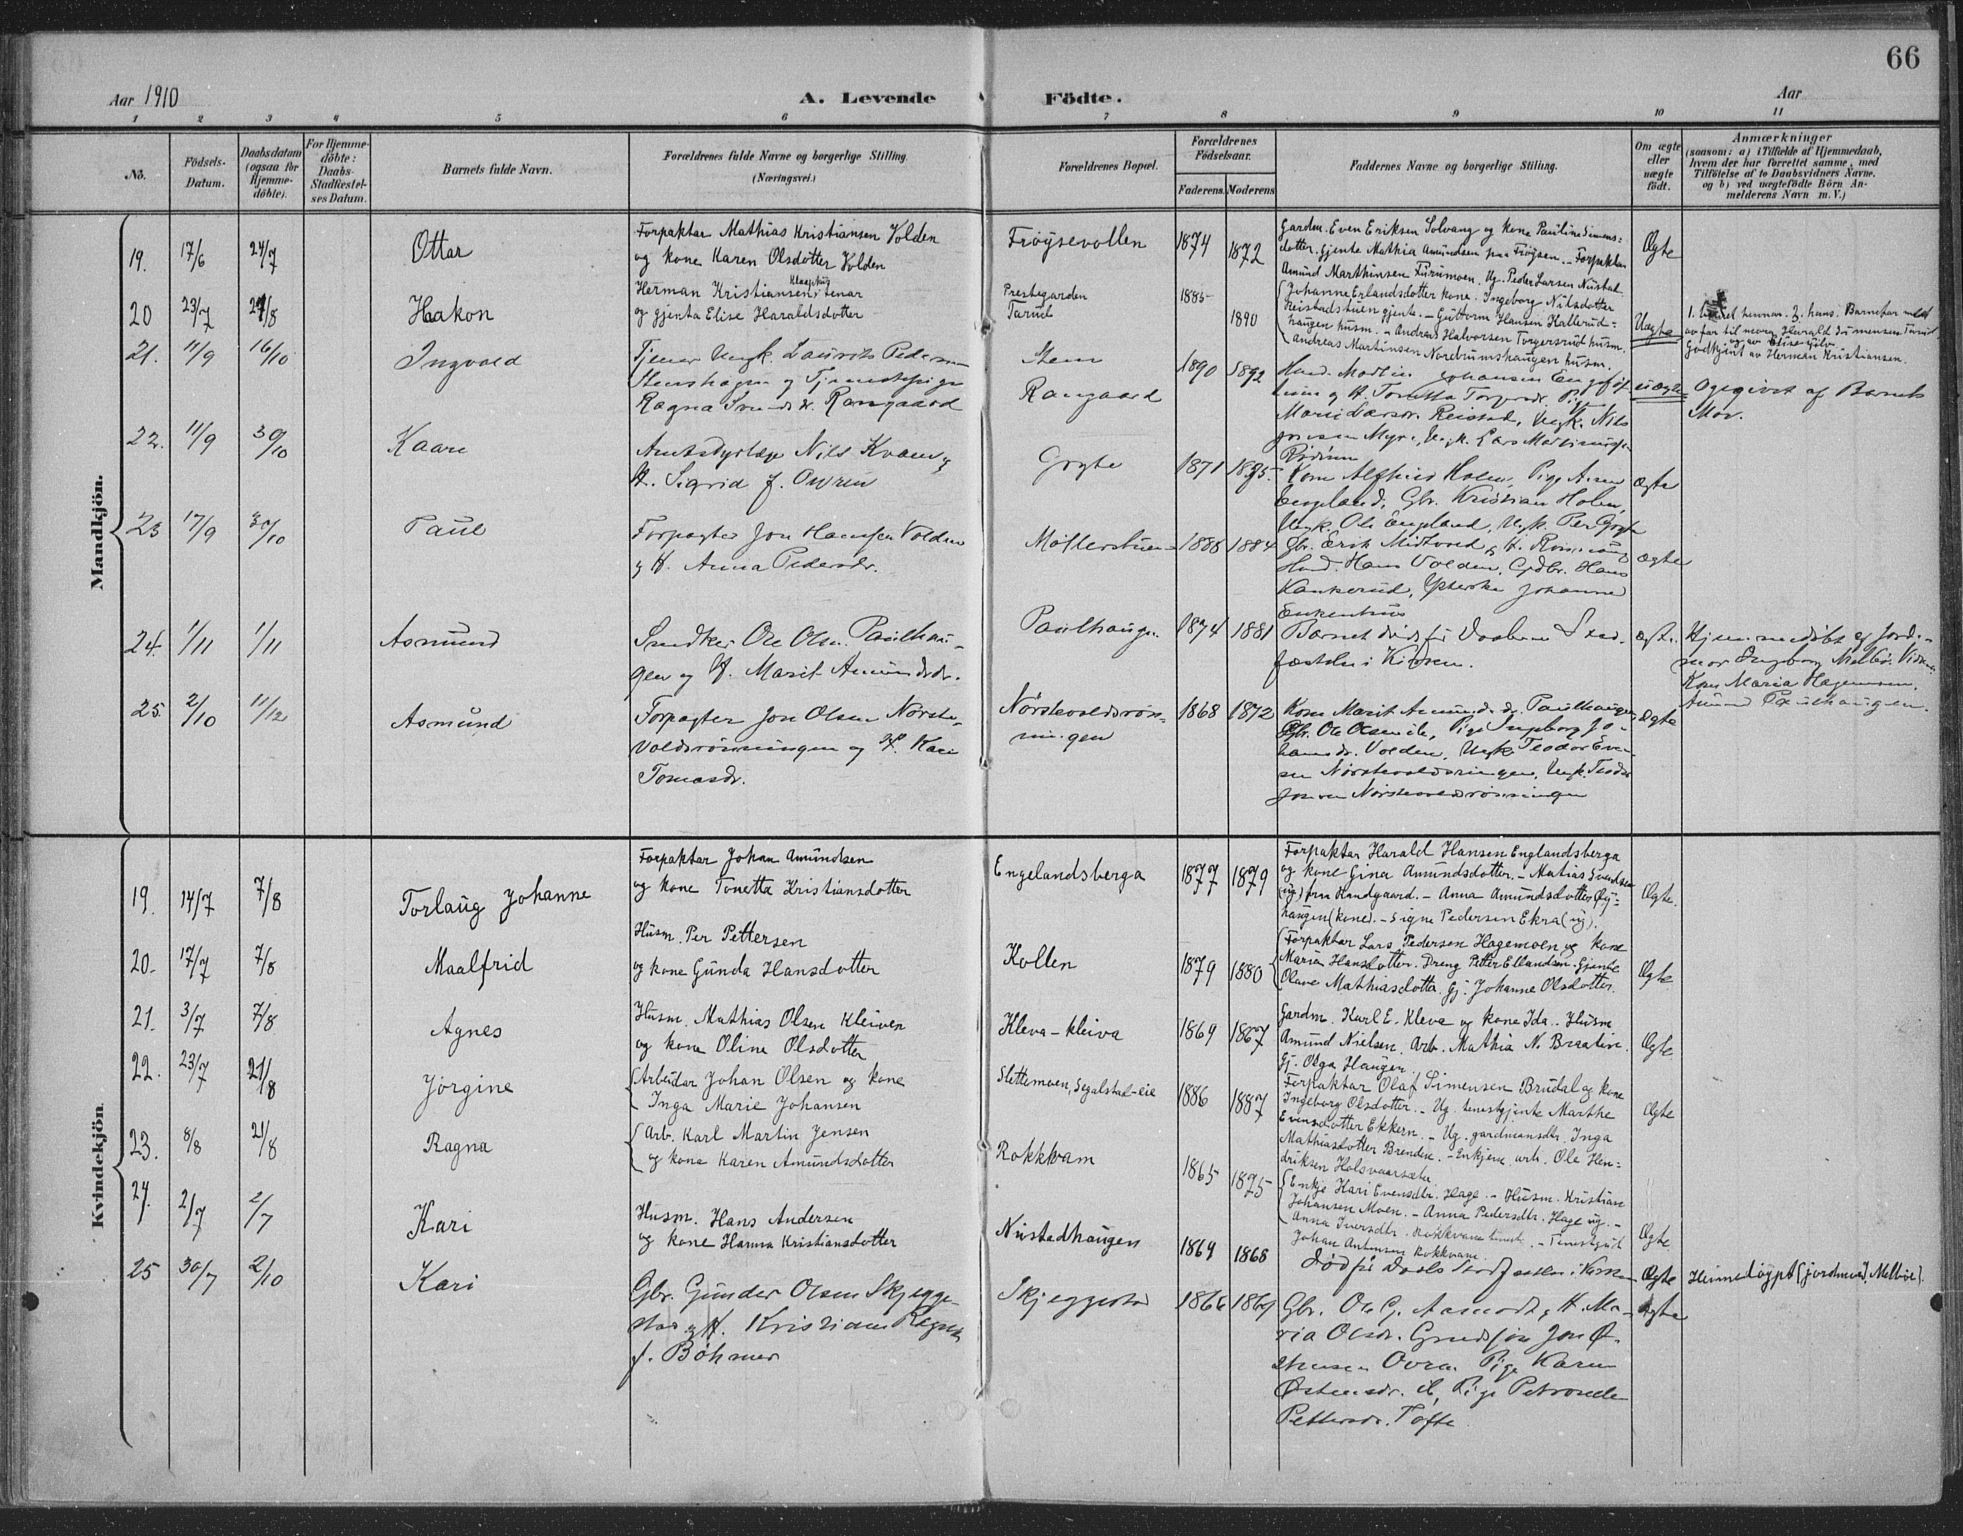 66
Aar 1910
A. Levende Födte.
Aar
1 2 3 4 5 6 7 8 9 10 11
No.
Födsels-
Datum.
Daabsdatum
(ogsaa for
Hjemme-
döbte).
For Hjemme-
döbte:
Daabs-
Stadfæstel-
ses Datum.
Barnets fulde Navn.
Forældrenes fulde Navne og borgerlige Stilling.
(Næringsvei.)
Forældrenes Bopæl.
Forældrenes
Födselsaar.
Faderens. Moderens
Faddernes Navne og borgerlige Stilling.
Om ægte
eller
uægte
födt.
Anmærkninger
(saasom: a) i Tilfælde af Hjemmedaab,
hvem der har forrettet samme, med
Tilföielse af to Daabsvidners Navne.
og b) ved uægtefödte Börn An-
melderens Navn m. V.)
Mandkjön.
19. 17/6 24/7 Ottar
Forpaktar Mathias Kristiansen Volden
og kone Karen Olsdotter Volden
Fröysevollen 1874 1872
Gardm. Even Eriksen Solvang og kone Pauline Simens-
dotter. Gjente Mathia Amundsen paa Fröysen. – Forpaktar
Amund Marthinsen Furumoen. Ug. Peder Larsen Nustad.
Ægte
20 23/7 21/8 Haakon
Herman Kristiansen, tenar
og gjenta Elise Haraldsdotter
Prestegarden
Tarud
1885 1890
Johanne Erlandsdotter kone. Ingeborg Nilsdotter
Reistadstuen gjente. – Guttorm Hansen Kallerud-
haugen husm. – Andreas Halvorsen Torgersrud husm.
Andreas Martinsen Norebrumshaugen husm.
Uægte
hennar. 2. hans. Barnefar meldt
av far til moren Harald Simensen Tarud
og av Elise sjölv.
Godkjent av Herman Kristiansen.
21. 11/9 16/10 Ingvald
Tjener Ungk. Laurits Pedersen
Stenshagen og Tjenestepige
Ragna Rangaard
Stem
Rangaard
1890 1892
uægte
Opgivet af Barnets
Mor.
22. 11/9 30/10 Kaare
Amtsdyrlæge Nils Kvam og
H. Sigrid f. Owren
Gryte 1871 1885.
Kone Alfhild Holm, Pige Anne
Engeland, Gbr. Kristian Holm,
Ungk. Ole Engeland, Ungk. Per Gryte
ægte
23 17/9 30/10 Paul
Forpagter Jon Hansen Volden
og H. Anna Pedersdr.
Möllerstuen 1885 1884
Gbr. Erik Midtvold og H.
Hans Volden, Gdbr. Hans
Kankerud, Johanne
Enkenhus
ægte
24. 1/11 1/11 Asmund
Snedker Ole Olsen Paulhau-
gen og H. Marit Amundsdr.
Paulhaugen 1874 1881
Barnet död før Daabens Stad-
fæstelse i Kirken.
ægte
Hjemmedöbt af Jord-
mor Ingborg Melbö. Vidner
Kone Maria Hagemoen,
Amund Paulhaugen.
25. 2/10 11/12 Asmund
Forpagter Jon Olsen Nörste-
voldsrönningen og H. Kari
Tomasdr.
Nörstevoldsrön-
ningen
1868 1872
Kone Marit Amundsdr. Paulhaugen
Gbr. Ole Olsen ib., Pige Ingeborg Jo-
hansdr. Volden, Ungk. Teodor Even-
sen Nörstevoldsrönningen, Ungk. Teodor
Jonsen Nörstevoldsrönningen
ægte
Kvindekjön.
19. 14/7 7/8 Torlaug Johanne
Forpaktar Johan Amundsen
og kone Tonetta Kristiansdotter
Engelandsberga 1877 1879
Forpaktar Harald Hansen Englandsberga
og kone Gina Amundsdotter. – Matias Svendsen
(ug) fraa Handgaard. – Anna Amundsdotter Öy-
haugen (kone). – Signe Pedersen Ekra (ug).
Ægte.
20. 17/7 7/8 Maalfrid
Husm. Per Pettersen
og kone Gunda Hansdotter
Kollen 1879 1880
Forpaktar Lars Pedersen Hagemoen og kone
Maria Hansdotter. Dreng Petter Ellandsen. Gjente
Olave Mathiasdotter. Gj. Johanne Olsdotter.
Ægte
21. 3/7 7/8 Agnes
Husm. Mathias Olsen Kleiven
og kone Oline Olsdotter
Kleva-kleiva 1869 1867
Gardm. Karl E. Kleve og kone Ida. Husm
Amund Nielsen. Arb. Mathia N. Braatin.
Gj. Olga Haugen.
Ægte
22. 23/7 21/8 Jörgine
Arbeidar Johan Olsen og kone
Inga Marie Johansen
Slettemoen, Segalstad-eie 1886 1887
Forpaktar Olaf Simensen Brudal og kone
Ingeborg Olsdotter. – Ug. tenestgjente Marthe
Evensdotter Ekkern. – Ug. gardmansdtr. Inga
Mathiasdotter Brenden. – Enkjem. arb. Ole Hen-
driksen Holsvaarsæte.
Ægte
23. 8/8 21/8 Ragna
Arb. Karl Martin Jensen
og kone Karen Amundsdotter
Rokkvam 1865 1875
Enkje Kari Evensdtr. Hage. – Husm. Kristian
Johansen Moen. – Anna Pedersdtr. Hage ug. –
Anna Iversdtr. Rokkvam – Tenestgut
Johan Antonsen Rokkvam.
Ægte
24. 2/7 2/7 Kari
Husm. Hans Andersen
og kone Hanna Kristiansdotter
Nustadhaugen 1869 1868
Död för Daabs Stadfæstelse i Kirken
Ægte
Heimedöypt (jordmor Melböe).
25 30/7 2/10 Kari
Gbr. Gunder Olsen Skjegge-
stad og H. Kristiane Ragna
f. Böhmer
Skjeggestad 1866 1869
Gbr. Ole G. Aamodt og H. Ma-
ria Olsdr. Jon Ö-
Ovren Pige Karen
Östensdr. ib. Pige Petronelle
Pettersdr. Tofte.
Ægte